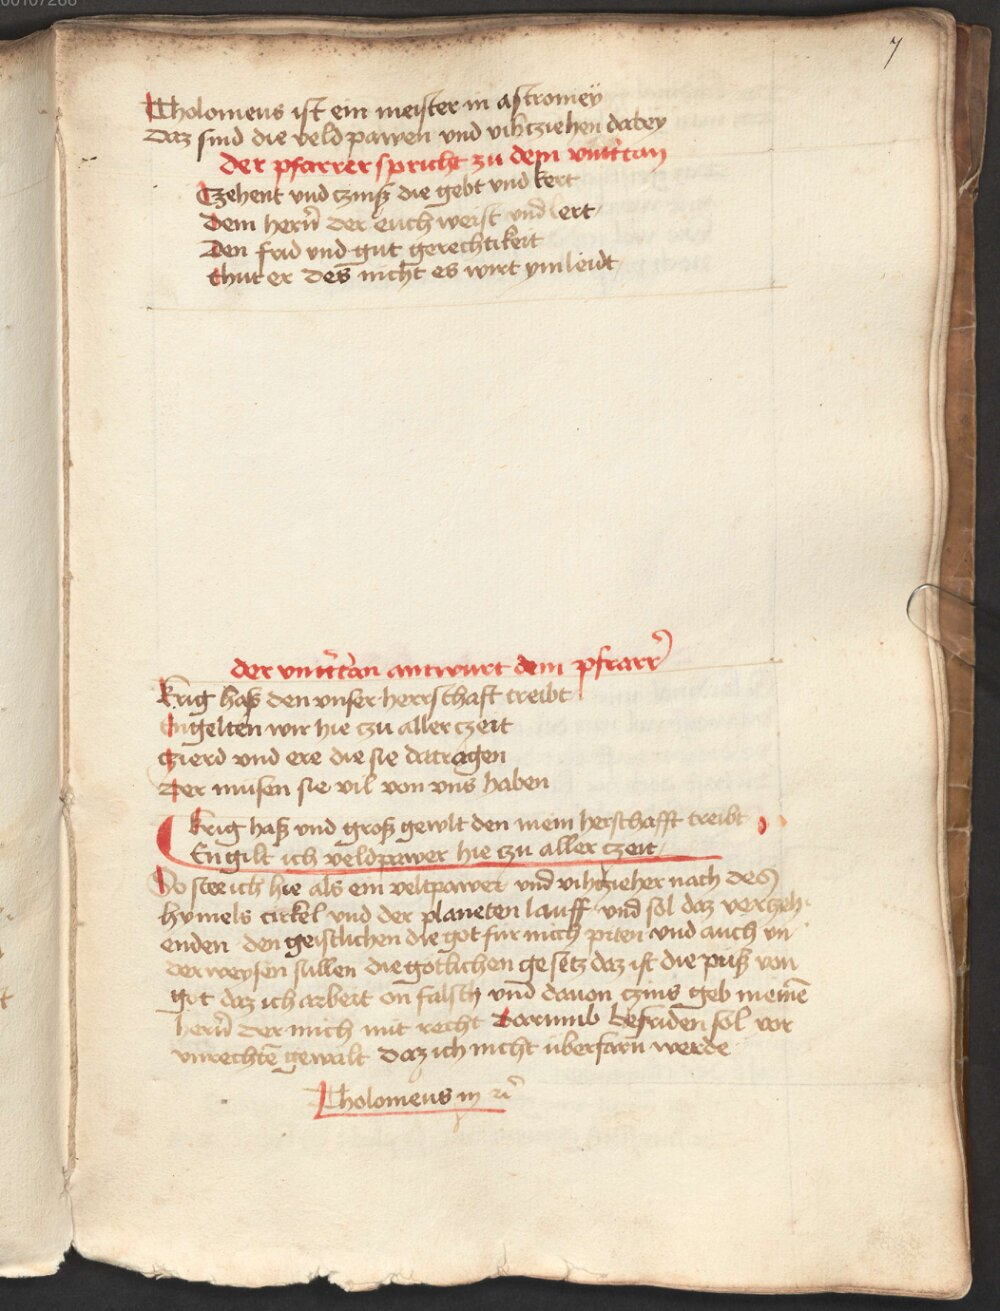 00107266
7
Tholomeus ist ein meister in astromeÿ
Daz sind die veld pawen und vihcziehen dabey
der pfarrer spricht zu dem
Czehent und czinß die gebt und kert
Dem herñ der euch weist und lert
Den frid und gut gerechtikeit
thut er des nicht es wirt ym leidt
der antwurt dem pfrarr
Krig haß den unser herrschaft treibt
Engelten wir hie czu aller czeit
Czierd und ere die sie da tragen
Der musen sie vil von uns haben
Krig haß und groß gewlt den mein herschafft treibt
En gilt ich veldpawer hie czu aller czeit
So stee ich hie als ein veltpawer und vihczieher nach des
hymels cirkel und der planeten lauff und sol daz verczeh
enden den geistlichen die got fur mich piten und auch un
der weysen sullen die gotlichen gesetz daz ist die puß von
got daz ich arbeit on falsch und davon czins geb meinē
herñ der mich mit recht darumb befriden sol vor
unrechtē gewalt daz ich nicht überfarn werde
Tholomeus in